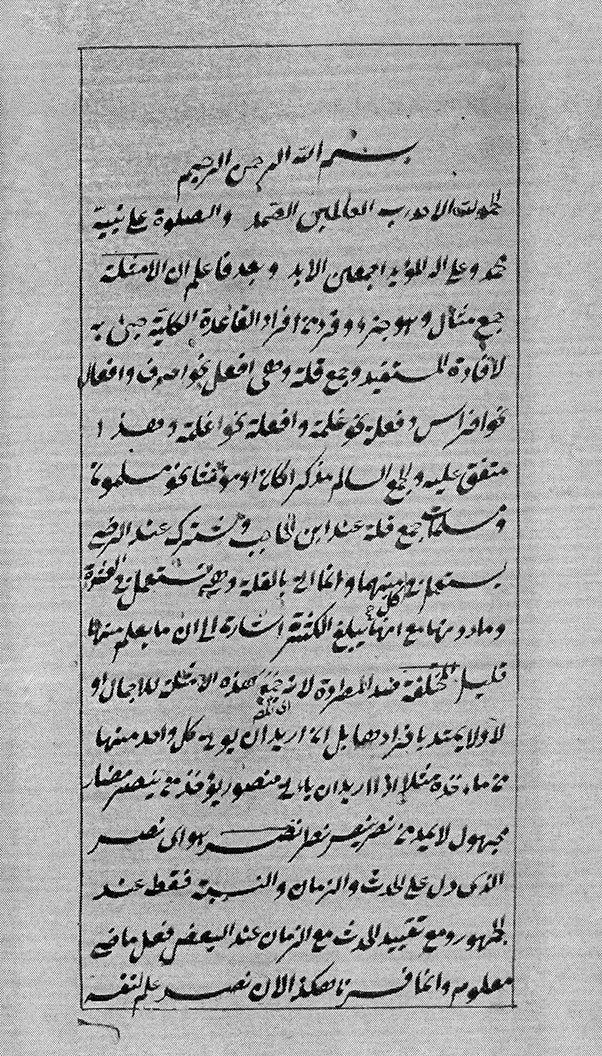 بسم الله الرحمن الرحيم
الحمد لله الاحد رب العالمين الصمد والصلوة على نبيه
محمد وعلى اله المؤيد اجمعين الابد وبعد فاعلم ان الامثلة
جمع مثال وهو جزء وفرد من افراد القاعدة الكلية جئ به
لافادة المستفيد وجمع قلة وهى افعل نحو احرف وافعال
نحو افراس وفعلة نحو غلمة وافعلة نحو اغلمة وهذا
متفق عليه والجمع السالم مذكرا كان او مؤنثا نحو مسلمون
ومسلمات جمع قلة عند ابن الحاجب ومشترك عند الرضى
يستعمل فى منهما وانما اتى بالقلة وهى تستعمل فى العشرة
وما دونها مع انها تبلغ الكثرة اشارة الى ان ما يعلم منها
قليل المختلفة ضد المطردة لانه هذه الامثلة للاجمال او
لا ولا يمتد بافرادها بل ان اريد ان يؤتى كل واحد منها
من ماخذه مثلا اذا اريد ان ياتى منصور يؤخذ من ينصر مضارع
مجهول لا يمتد من نصر ينصر نصرا نصر هو اى نصر
الذى دل على الحدث والزمان والنسبة فقط عند
الجمهور ومع تقييد الحدث مع الزمان عند البعض فعل ماضى
معلوم وانما هكذا لان نصر علم لنفسه